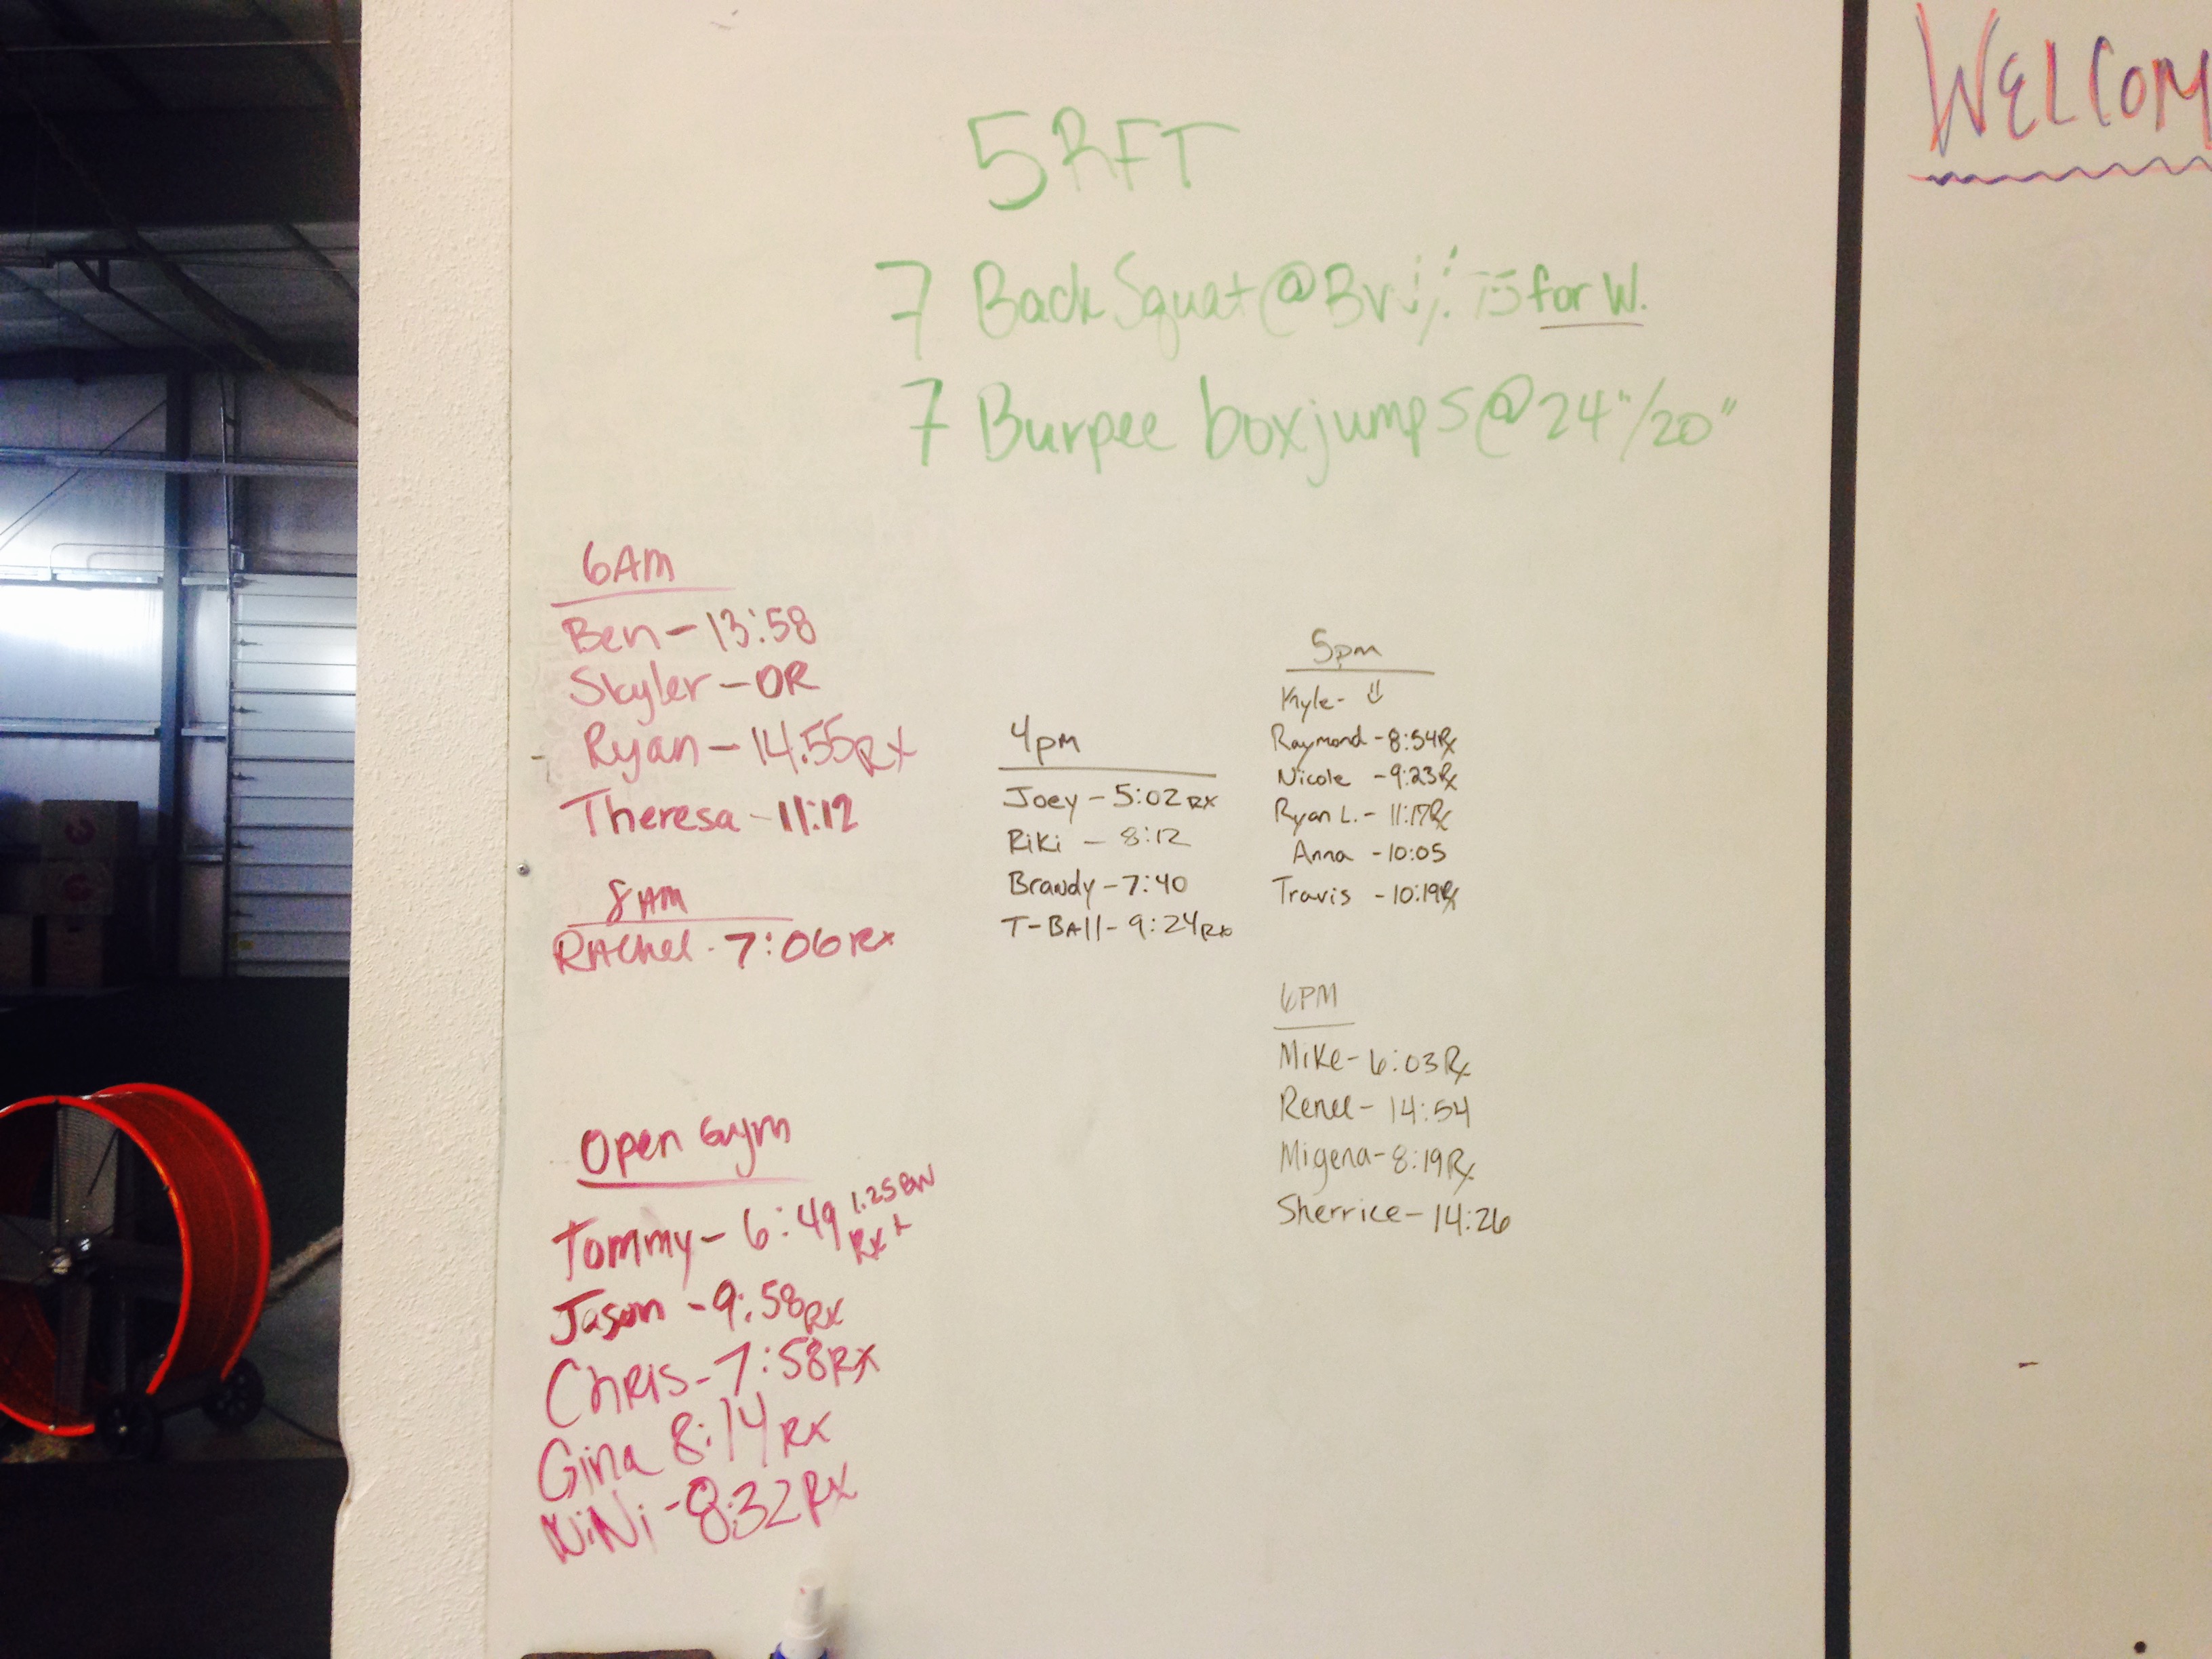 5 RFT
7 Back Squat @ for W.
7 Burpee box jumps @ 24"/20"
6AM
Ben - 13:58
Skyler - DR
Ryan - 14:55 RX
Theresa - 11:12
8AM
RAchel - 7:06 RX
Open Gym
Tommy - 6:49 1.25 BW
RX +
Jason - 9:58 RX
ChRis - 7:58 RX
Gina 8:14 RX
NiNi - 8:32 RX
4pm
Joey - 5:02 RX
Riki - 8:12
Brandy - 7:40
T-BAll - 9:24 RX
5pm
Kyle -
Raymond - 8:54 Rx
Nicole - 9:23 Rx
Ryan L. - 11:17 Rx
Anna - 10:05
Travis - 10:19 Rx
6PM
Mike - 6:03 Rx
Renee - 14:54
Migena - 8:19 Rx
Sherrice - 14:26
WELCOM